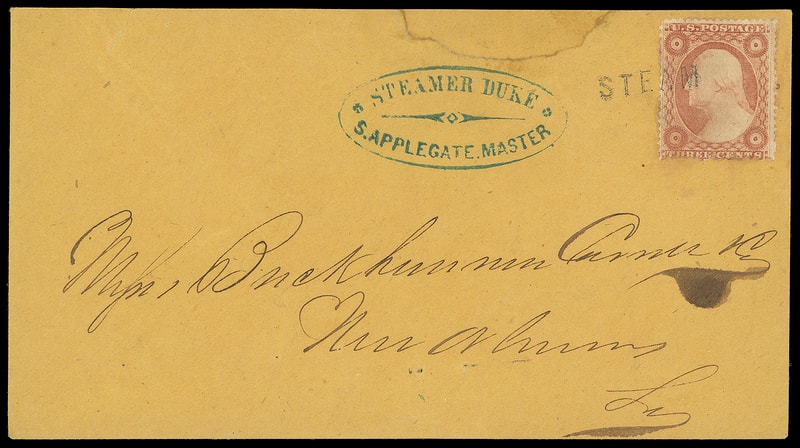 STEAMER DUKE
S. APPLEGATE. MASTER
STEAM
U.S. POSTAGE
THREE CENTS
Buckhannon
New Orleans
La